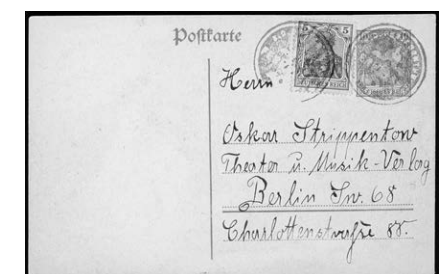 Postkarte
5 5
Herrn
Oskar Strippentow
Theater u. Musik-Verlag
Berlin Sw. 68
Charlottenstraße 88.